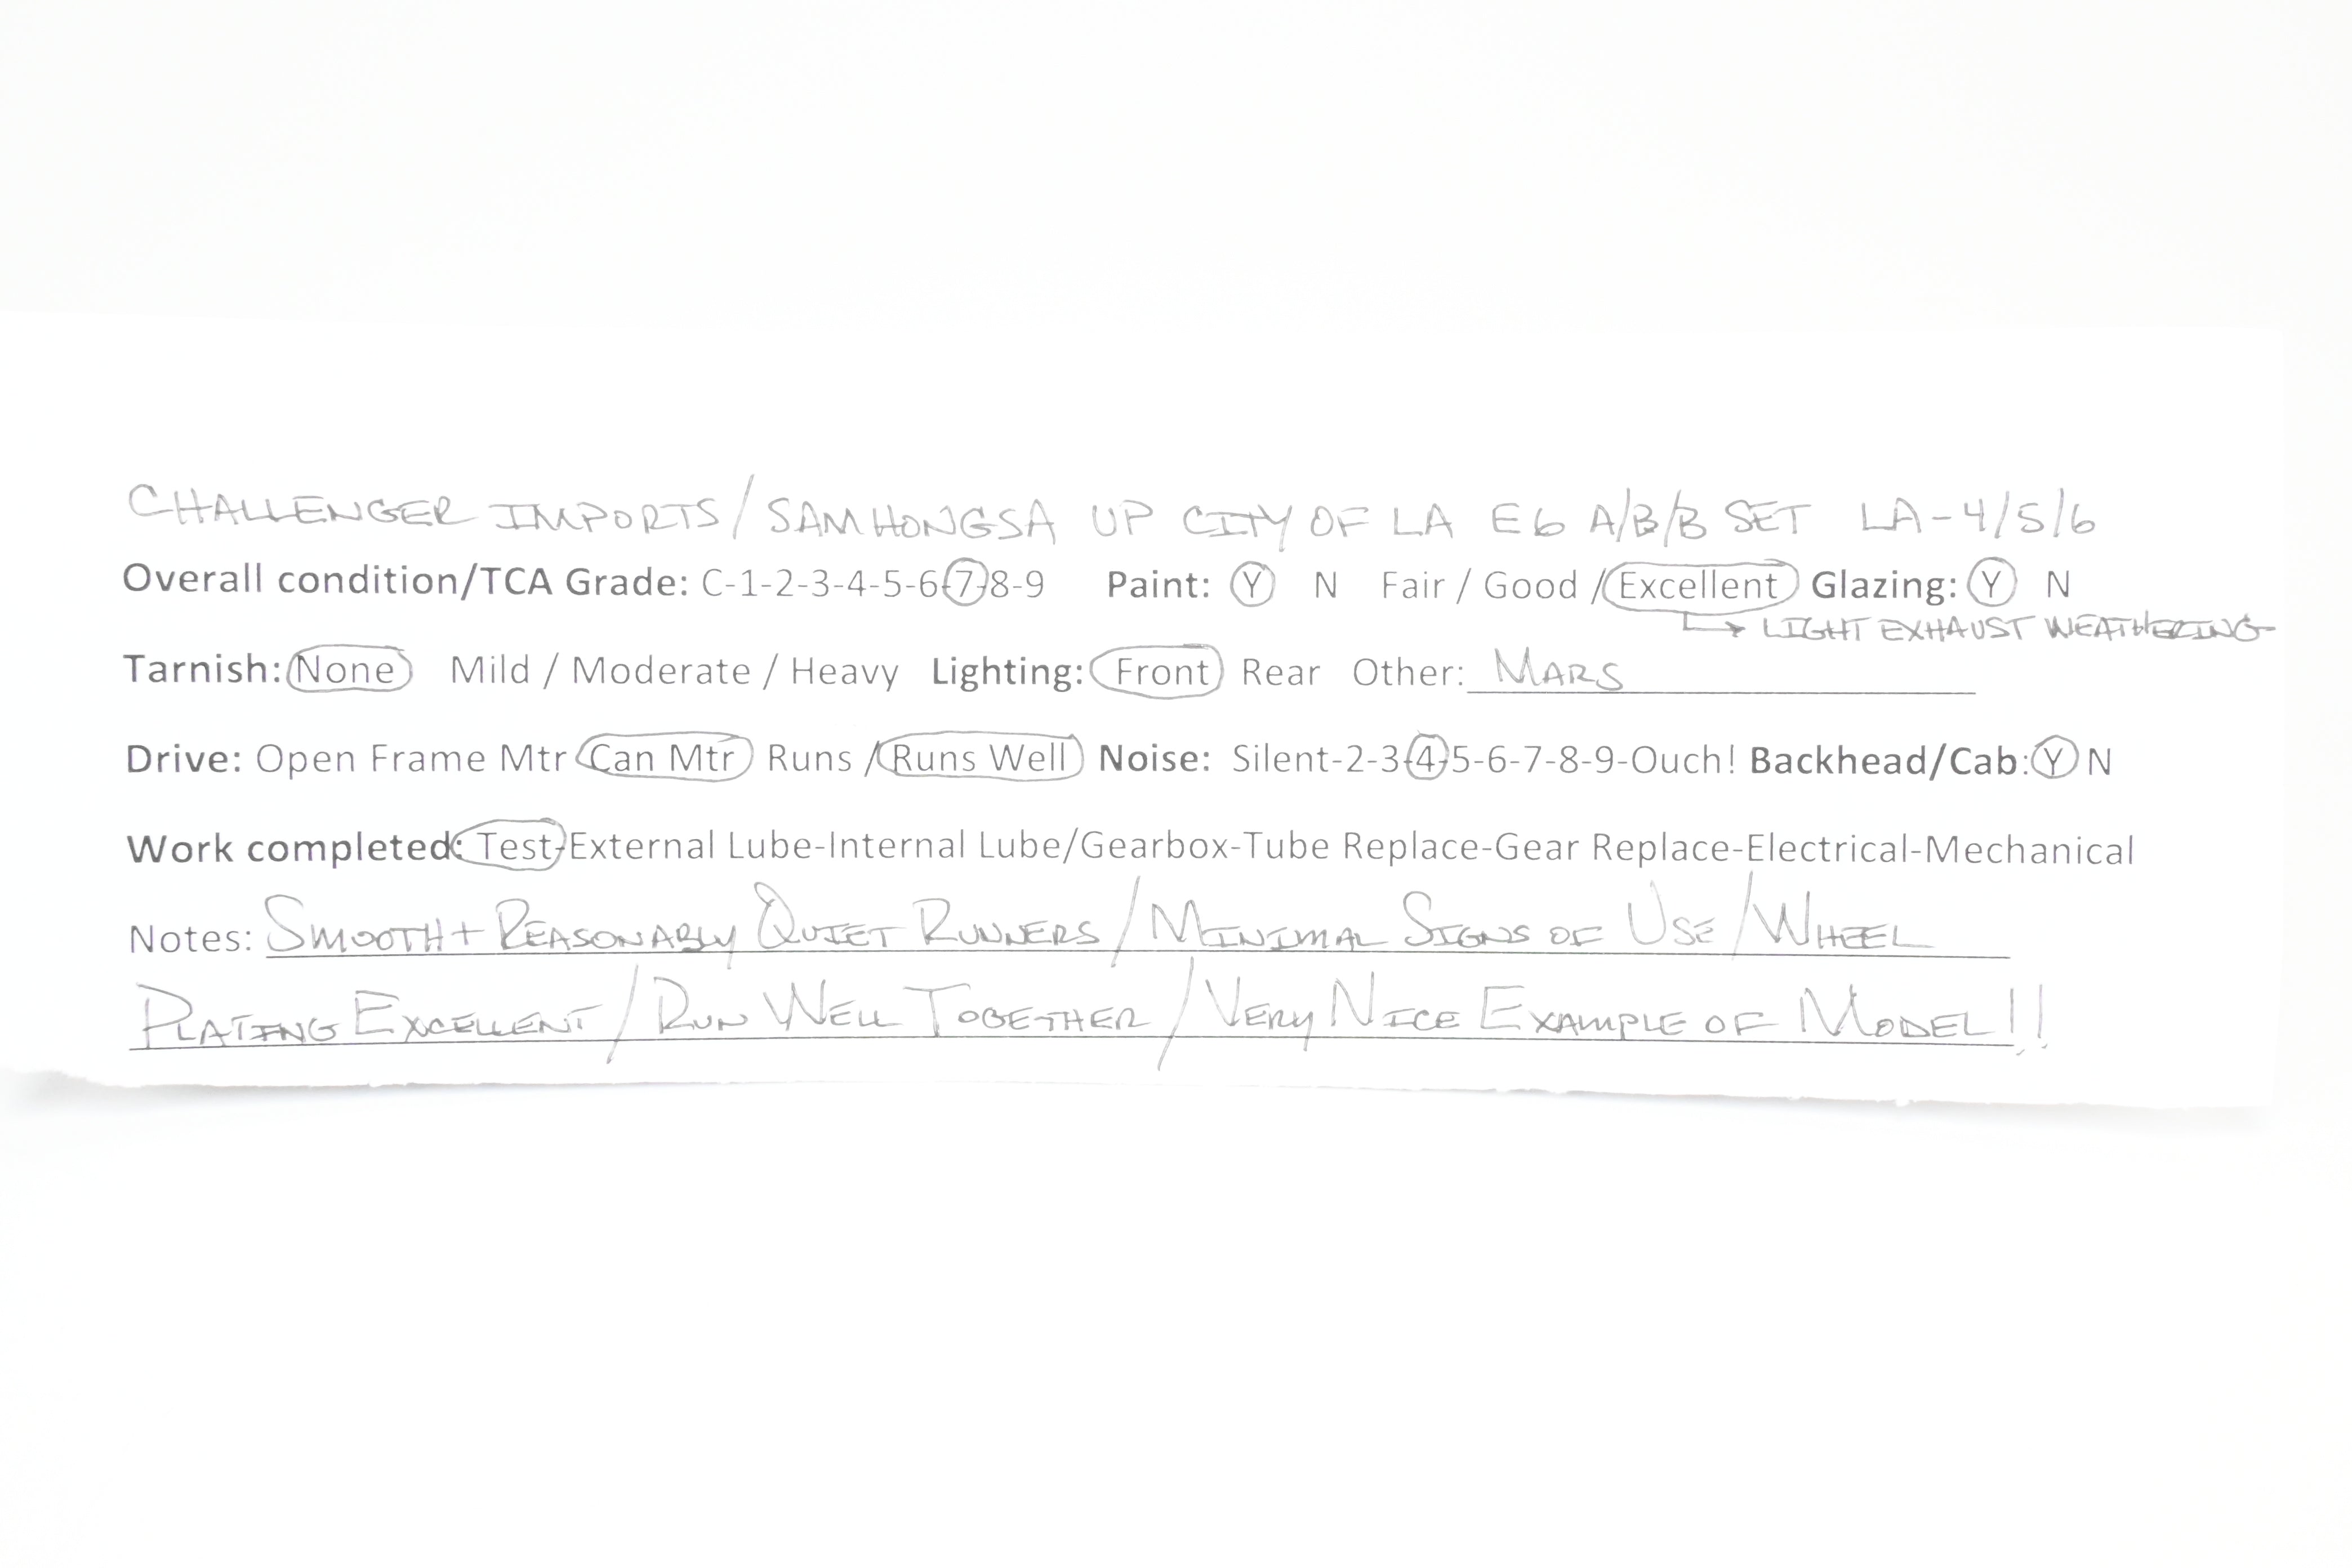 CHALLENGER IMPORTS/SAMHONGSA UP CITY OF LA E6 A/B/B SET LA-4/5/6
Overall condition/TCA Grade: C-1-2-3-4-5-6-7-8-9 Paint: Y N Fair / Good / Excellent Glazing: Y N
→ LIGHT EXHAUST WEATHERING
Tarnish: None Mild / Moderate / Heavy Lighting: Front Rear Other: MARS
Drive: Open Frame Mtr Can Mtr Runs / Runs Well Noise: Silent-2-3-4-5-6-7-8-9-Ouch! Backhead/Cab: Y N
Work completed: Test-External Lube-Internal Lube/Gearbox-Tube Replace-Gear Replace-Electrical-Mechanical
Notes: SMOOTH + REASONABLY QUIET RUNNERS / MINIMAL SIGNS OF USE / WHEEL
PLATING EXCELLENT / RUN WELL TOGETHER / VERY NICE EXAMPLE OF MODEL!!